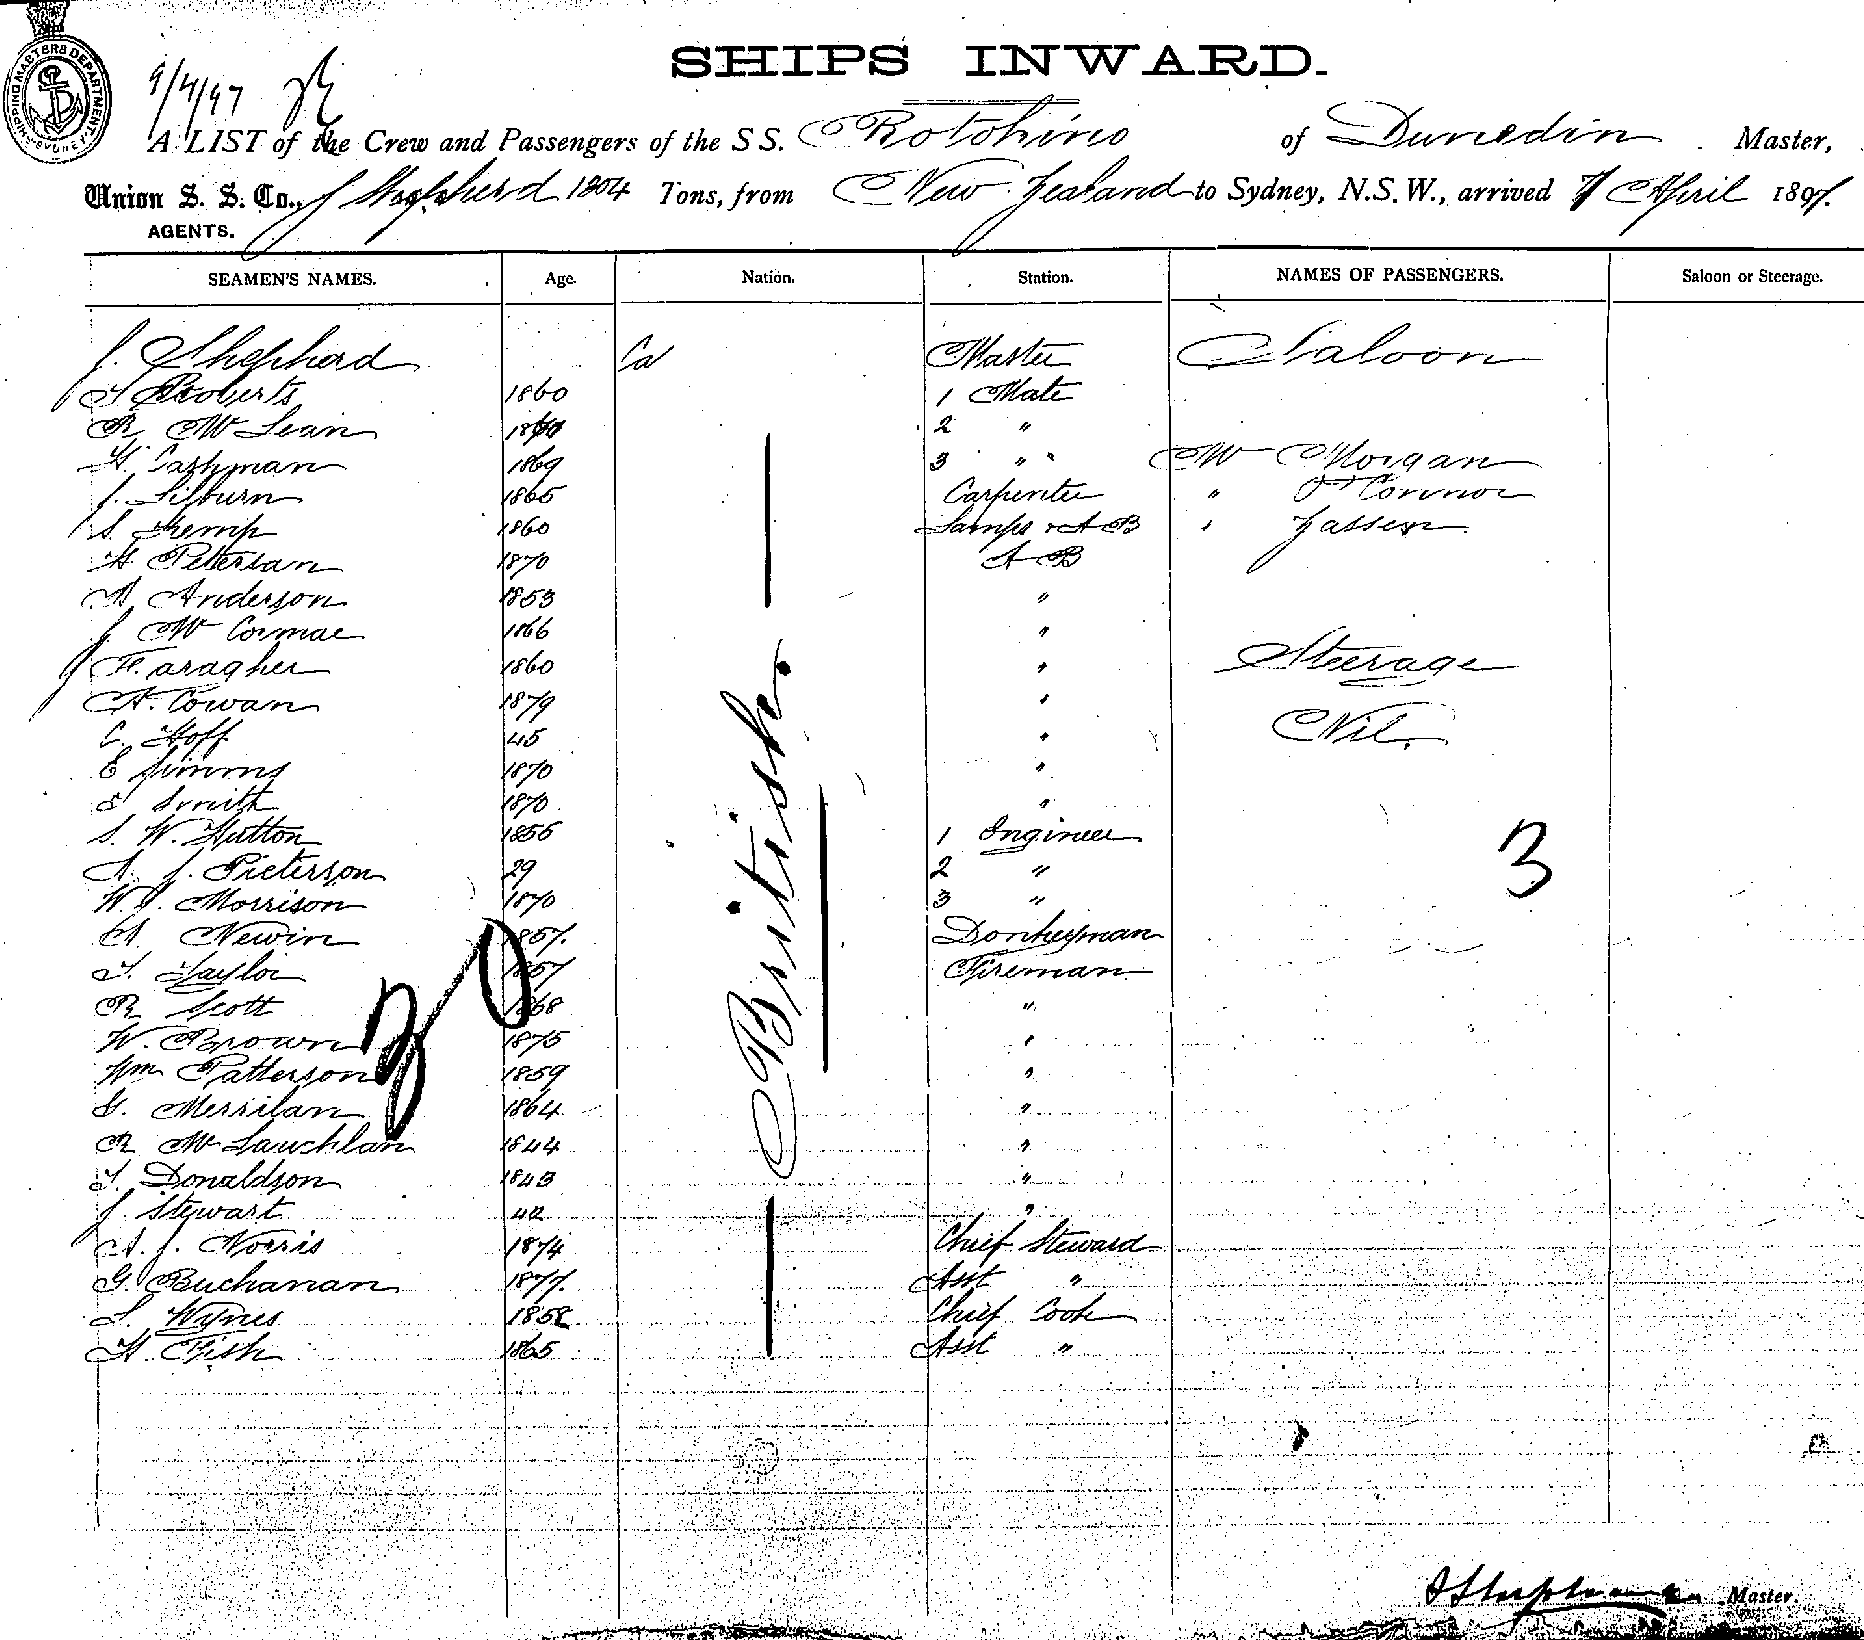 SHIPPING MASTERS DEPARTMENT SYDNEY
9/4/97
SHIPS INWARD.
A LIST of the Crew and Passengers of the S S. Rotohino of Dunedin Master,
Union S. S. Co., J Shepherd 1804 Tons, from New Zealand to Sydney, N.S.W., arrived 7 April 1897.
AGENTS.
SEAMEN'S NAMES. Age. Nation. Station. NAMES OF PASSENGERS. Saloon or Steerage.
J. Shepherd Master Saloon
T Roberts 1860 1 Mate
R McLean 2 "
H. Cashman 1869 3 " " Mr Morgan
J. Silburn 1865 Carpenter " O'Connor
S. Kemp 1860 Lamps & A B " Jassen
H Petersan 1870 A B
A Anderson 1853 "
J McCormac 1866 "
F. aragher 1860 " Steerage
A. Cowan 1879 "
C. Hoff 45 " Nil.
E Simms 1870 "
E Smith 1870 "
S. W. Hutton 1856 1 Engineer
A. J. Pieterson 29 2 " 3
W. J. Morrison 1870 3 "
A. Newin 1857. Donkeyman
T. Taylor 1857 Fireman
R Scott 1868 "
W. Brown 1875 "
Wm Patterson 1859 "
G. Merrilan 1864 "
R McLauchlan 1844 "
T. Donaldson 1843 "
J. Stewart 42 "
A. J. Norris 1874 Chief Steward
G. Buchanan 1877. Asst "
L. Wynes 1858 Chief Cook
H. Fish 1865 Asst "
British
30
J Shepherd Master.